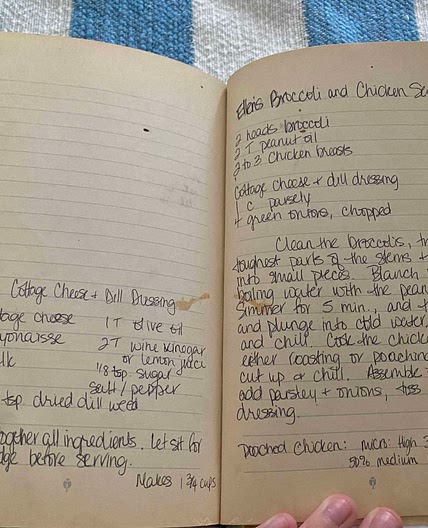 Cottage Cheese + Dill Dressing
tage cheese 1 T olive oil
yonaisse 2 T wine vinegar
lk or lemon juice
1/8 tsp. sugar
salt/pepper
tsp. dried dill weed
ogether all ingredients. Let sit for
dge before serving.
Makes 1 3/4 cups
Ellen's Broccoli and Chicken Sa
2 heads broccoli
2 T peanut oil
2 to 3 Chicken breasts
Cottage cheese + dill dressing
1 c parsely
4 green onions, chopped
Clean the broccoli, tr
toughest parts of the stems +
into small pieces. Blanch
boiling water with the pean
Simmer for 5 min., and
and plunge into cold water,
and chill. Cook the chick
either roasting or poaching
cut up & chill. Assemble
add parsley + onions, toss
dressing.
Poached Chicken: micro: High 3
50% medium